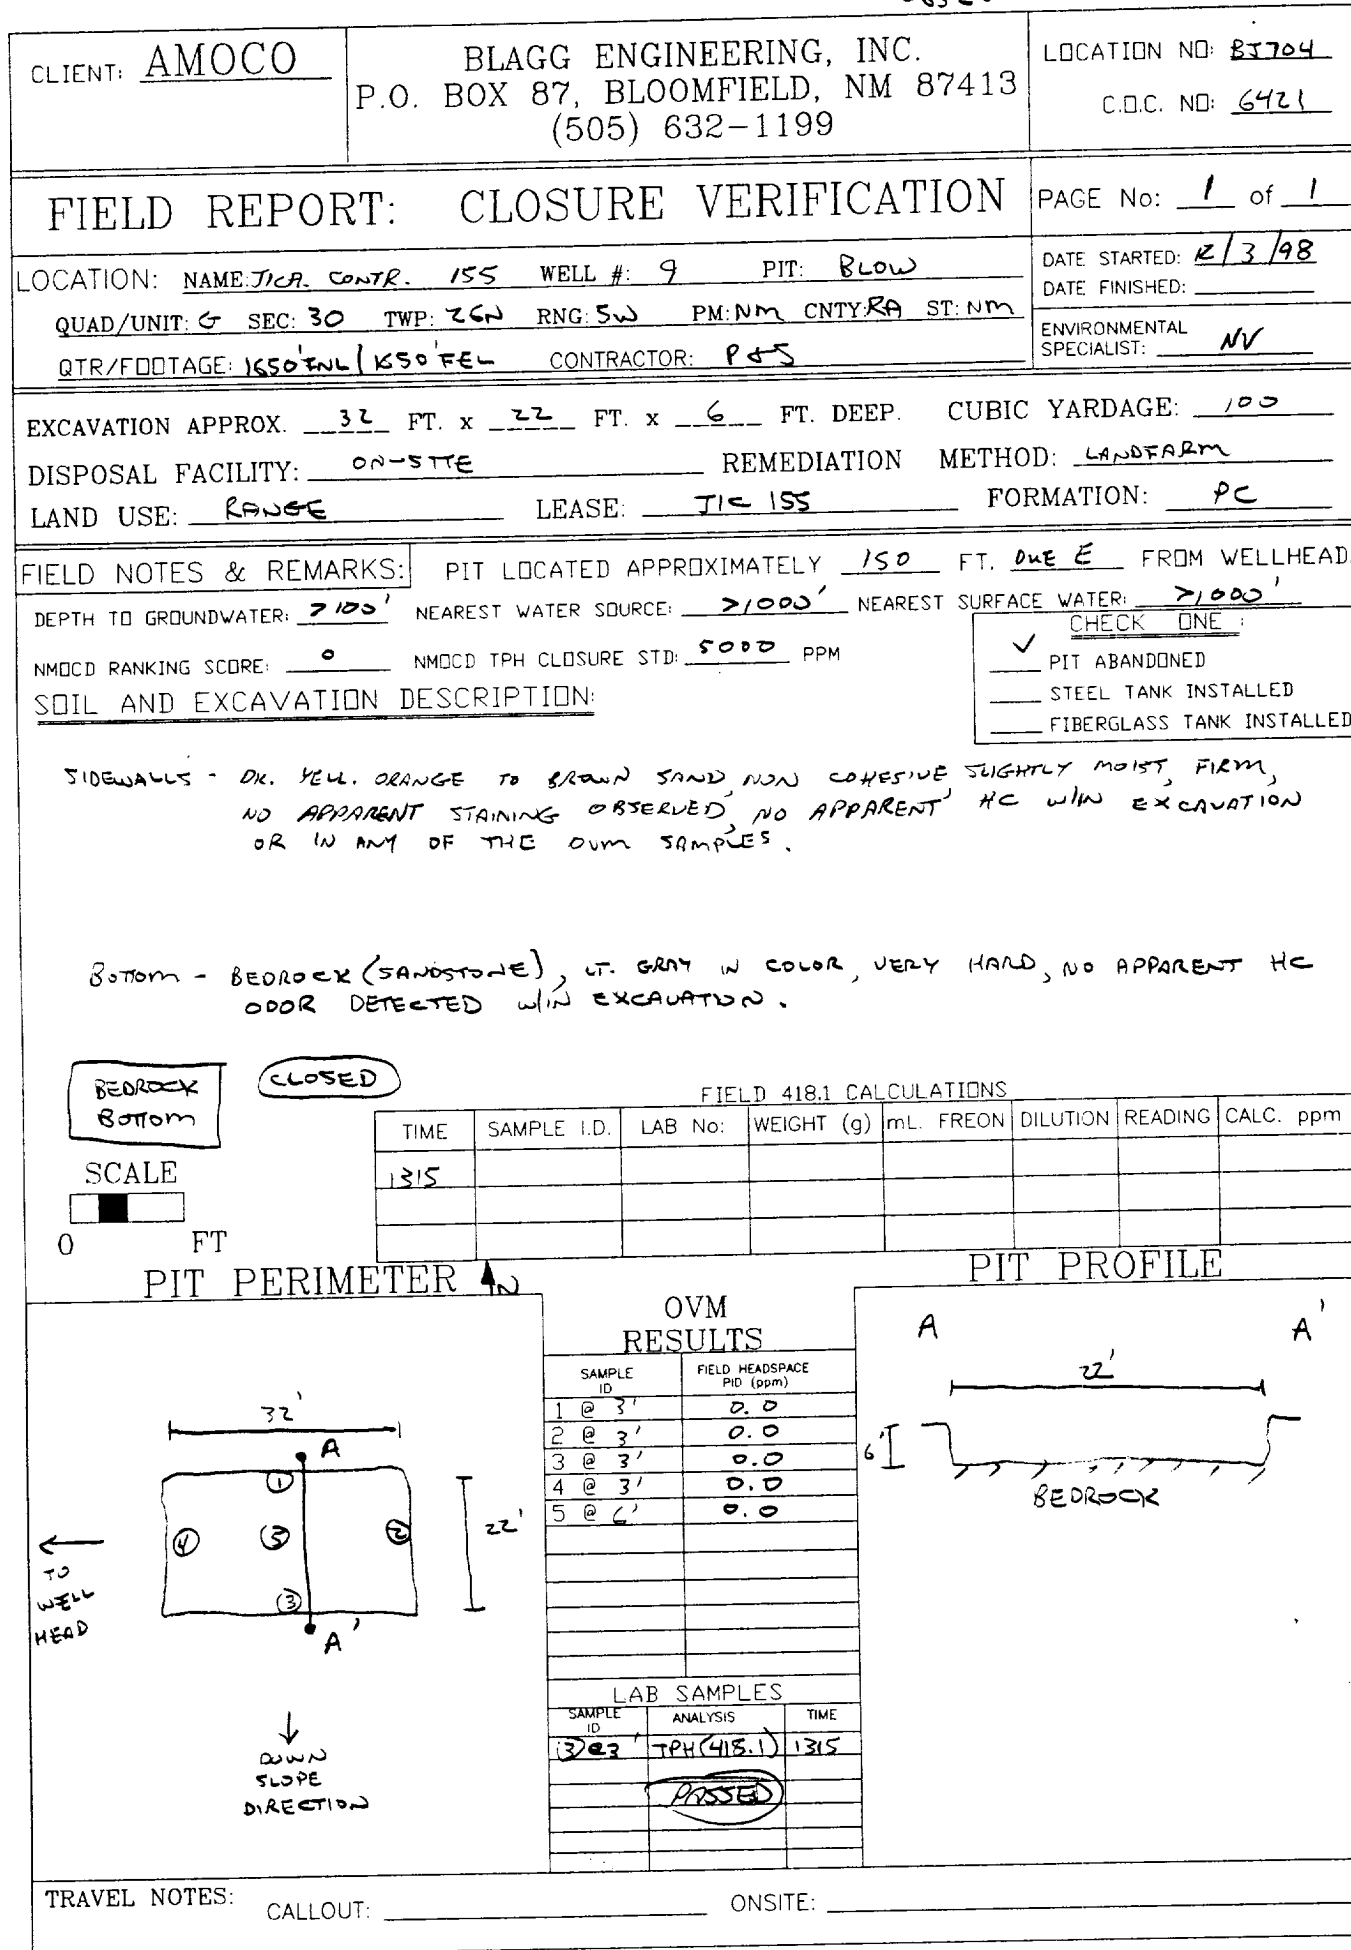 CLIENT: AMOCO
BLAGG ENGINEERING, INC.
P.O. BOX 87, BLOOMFIELD, NM 87413
(505) 632-1199
LOCATION NO: BJ704
C.O.C. NO: 6421
FIELD REPORT: CLOSURE VERIFICATION
PAGE No: 1 of 1
LOCATION: NAME: JICA. CONTR. 155 WELL #: 9 PIT: BLOW
QUAD/UNIT: G SEC: 30 TWP: 26N RNG: 5W PM: NM CNTY: RA ST: NM
QTR/FOOTAGE: 1650'FNL/1650'FEL CONTRACTOR: P&S
DATE STARTED: 12/3/98
DATE FINISHED:
ENVIRONMENTAL
SPECIALIST: NV
EXCAVATION APPROX. 32 FT. x 22 FT. x 6 FT. DEEP. CUBIC YARDAGE: 100
DISPOSAL FACILITY: ON-SITE REMEDIATION METHOD: LANDFARM
LAND USE: RANGE LEASE: JIC 155 FORMATION: PC
FIELD NOTES & REMARKS: PIT LOCATED APPROXIMATELY 150 FT. DUE E FROM WELLHEAD.
DEPTH TO GROUNDWATER: >100' NEAREST WATER SOURCE: >1000' NEAREST SURFACE WATER: >1000'
NMOCD RANKING SCORE: 0 NMOCD TPH CLOSURE STD: 5000 PPM
CHECK ONE :
✓ PIT ABANDONED
STEEL TANK INSTALLED
FIBERGLASS TANK INSTALLED
SOIL AND EXCAVATION DESCRIPTION:
SIDEWALLS - DK. YELL. ORANGE TO BROWN SAND, NON COHESIVE, SLIGHTLY MOIST, FIRM,
NO APPARENT STAINING OBSERVED, NO APPARENT HC W/IN EXCAVATION
OR IN ANY OF THE OVM SAMPLES.
BOTTOM - BEDROCK (SANDSTONE), LT. GRAY IN COLOR, VERY HARD, NO APPARENT HC
ODOR DETECTED W/IN EXCAVATION.
BEDROCK
BOTTOM
CLOSED
SCALE
0 FT
FIELD 418.1 CALCULATIONS
TIME SAMPLE I.D. LAB No: WEIGHT (g) mL. FREON DILUTION READING CALC. ppm
1315
PIT PERIMETER N
32'
A
1
4 3 2
3
A'
22'
←
TO
WELL
HEAD
↓
DOWN
SLOPE
DIRECTION
OVM
RESULTS
SAMPLE ID FIELD HEADSPACE PID (ppm)
1 @ 3' 0.0
2 @ 3' 0.0
3 @ 3' 0.0
4 @ 3' 0.0
5 @ 6' 0.0
LAB SAMPLES
SAMPLE ID ANALYSIS TIME
3@3' TPH(418.1) 1315
PASSED
PIT PROFILE
A A'
22'
6'
BEDROCK
TRAVEL NOTES: CALLOUT: ONSITE: